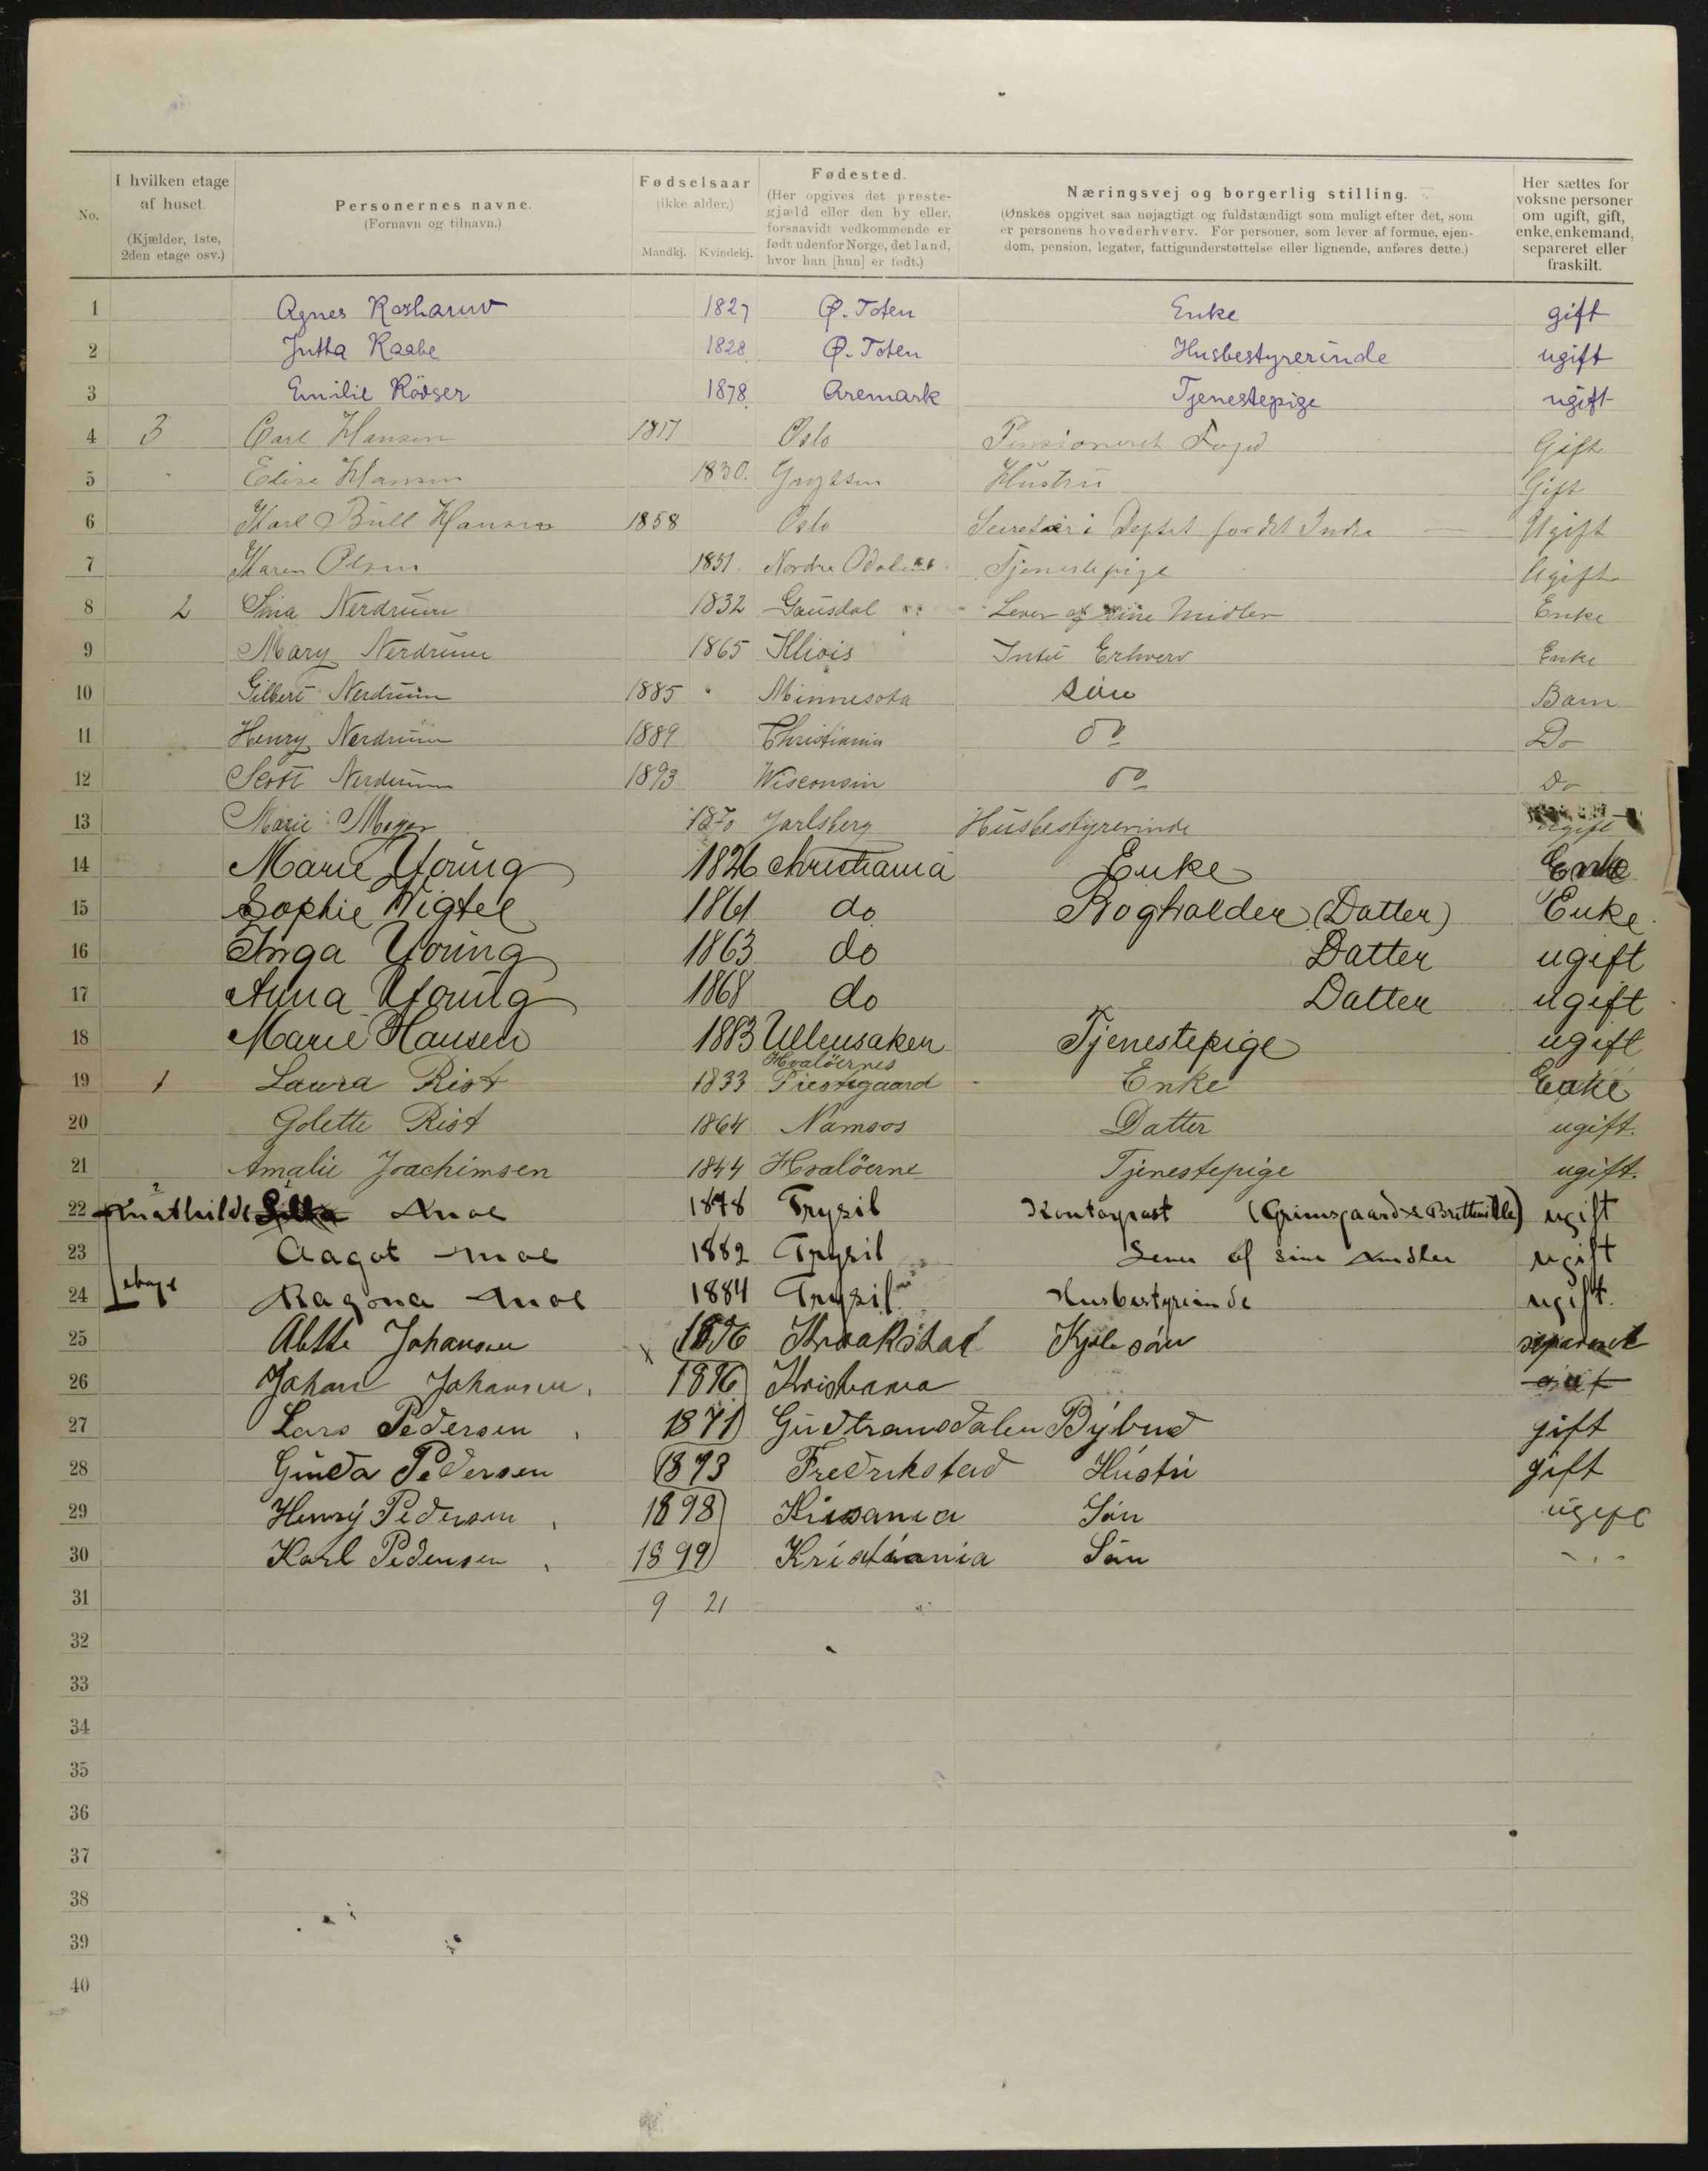 No.
I hvilken etage af huset. (Kjælder, 1ste, 2den etage osv.)
Personernes navne. (Fornavn og tilnavn.)
Fødselsaar (ikke alder.) Mandkj. Kvindekj.
Fødested. (Her opgives det prestegjæld eller den by eller, forsaavidt vedkommende er født udenfor Norge, det land, hvor han [hun] er født.)
Næringsvej og borgerlig stilling. (Ønskes opgivet saa nøjagtigt og fuldstændigt som muligt efter det, som er personens hovederhverv. For personer, som lever af formue, ejendom, pension, legater, fattigunderstøttelse eller lignende, anføres dette.)
Her sættes for voksne personer om ugift, gift, enke, enkemand, separeret eller fraskilt.
1 Agnes 1827 Ø. Toten Enke gift
2 Jutta Raabe 1828 Ø. Toten Husbestyrerinde ugift
3 Emilie Rödser 1878 Aremark Tjenestepige ugift
4 3 Carl Hansen 1817 Oslo Pensioneret Foged Gift
5 " Elise Hansen 1830. Hustru Gift
6 Karl Bull Hansen 1858 Oslo Secretær i Deptet for det Indre Ugift
7 Karen Olsen 1851. Nordre Odalen Tjenestepige Ugift
8 2 Nerdrum 1832 Gausdal Lever af sine Midler Enke
9 Mary Nerdrum 1865 Illiois Intet Erhverv Enke
10 Gilbert Nerdrum 1885 Minnesota Søn Barn
11 Henry Nerdrum 1889 Christiania do Do
12 Scott Nerdrum 1893 Wisconsin do Do
13 Marie Meyer 1870 Jarlsberg Husbestyrerinde ugift
14 Marie Young 1826 Christiania Enke Enke
15 Sophie Wigtel 1861 do Bogholder (Datter) Enke
16 Inga Young 1863 do Datter ugift
17 Anna Young 1868 do Datter ugift
18 Marie Hansen 1883 Ullensaker Tjenestepige ugift
19 1 Laura Rist 1833 Hvaløernes Prestegaard Enke Enke
20 Golette Rist 1864 Namsos Datter ugift.
21 Amalie Joachimsen 1844 Hvaløerne Tjenestepige ugift.
22 Mathilde Moe 1878 Trysil Kontorpost (Grimsgaard & ugift
23 Aagot Moe 1882 Trysil Lever af sine Midler ugift
24 etage Ragna Moe 1884 Trysil Husbestyreinde ugift.
25 Johansen 1876 Kraakstad separeret
26 Johan Johansen 1896 Kristiania
27 Lars Pedersen 1871 Gudbransdalen Bybud gift
28 Gunda Pedersen 1873 Fredrikstad Hustru gift
29 Henry Pedersen 1898 Søn ugift
30 Karl Pedersen 1899 Kristiania Søn - " -
31 9 21
32
33
34
35
36
37
38
39
40